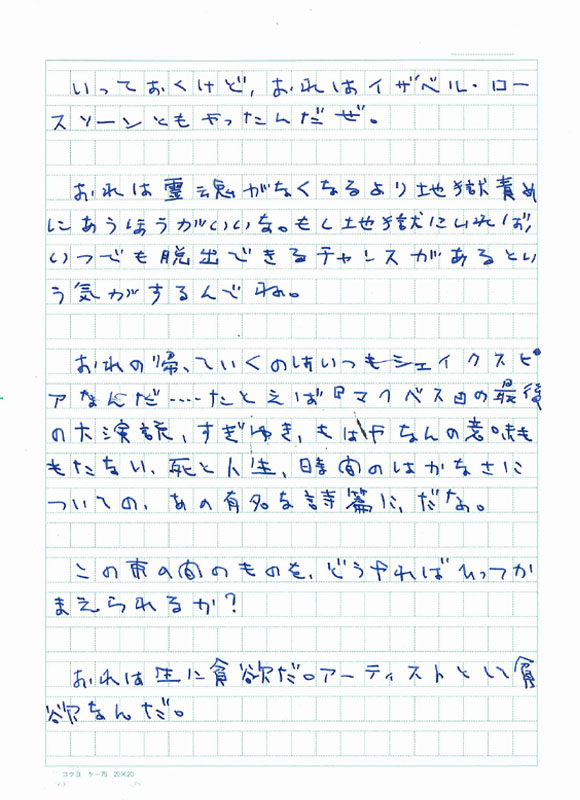 いっておくけど、おれはイザベル・ロー
スソーンともやったんだぜ。
おれは霊魂がなくなるより地獄責め
にあうほうがいいな。もし地獄にいれば、
いつでも脱出できるチャンスがあるとい
う気がするんでね。
おれの帰っていくのはいつもシェイクスピ
アなんだ……たとえば『マクベス』の最後
の大演説、すぎゆき、もはやなんの意味も
もたない、死と人生、時間のはかなさに
ついての、あの有名な詩篇に、だな。
この束の間のものを、どうやればひっつか
まえられるか？
おれは生に貪欲だ。アーティストとして貪
欲なんだ。
コクヨ ケ-75 20×20